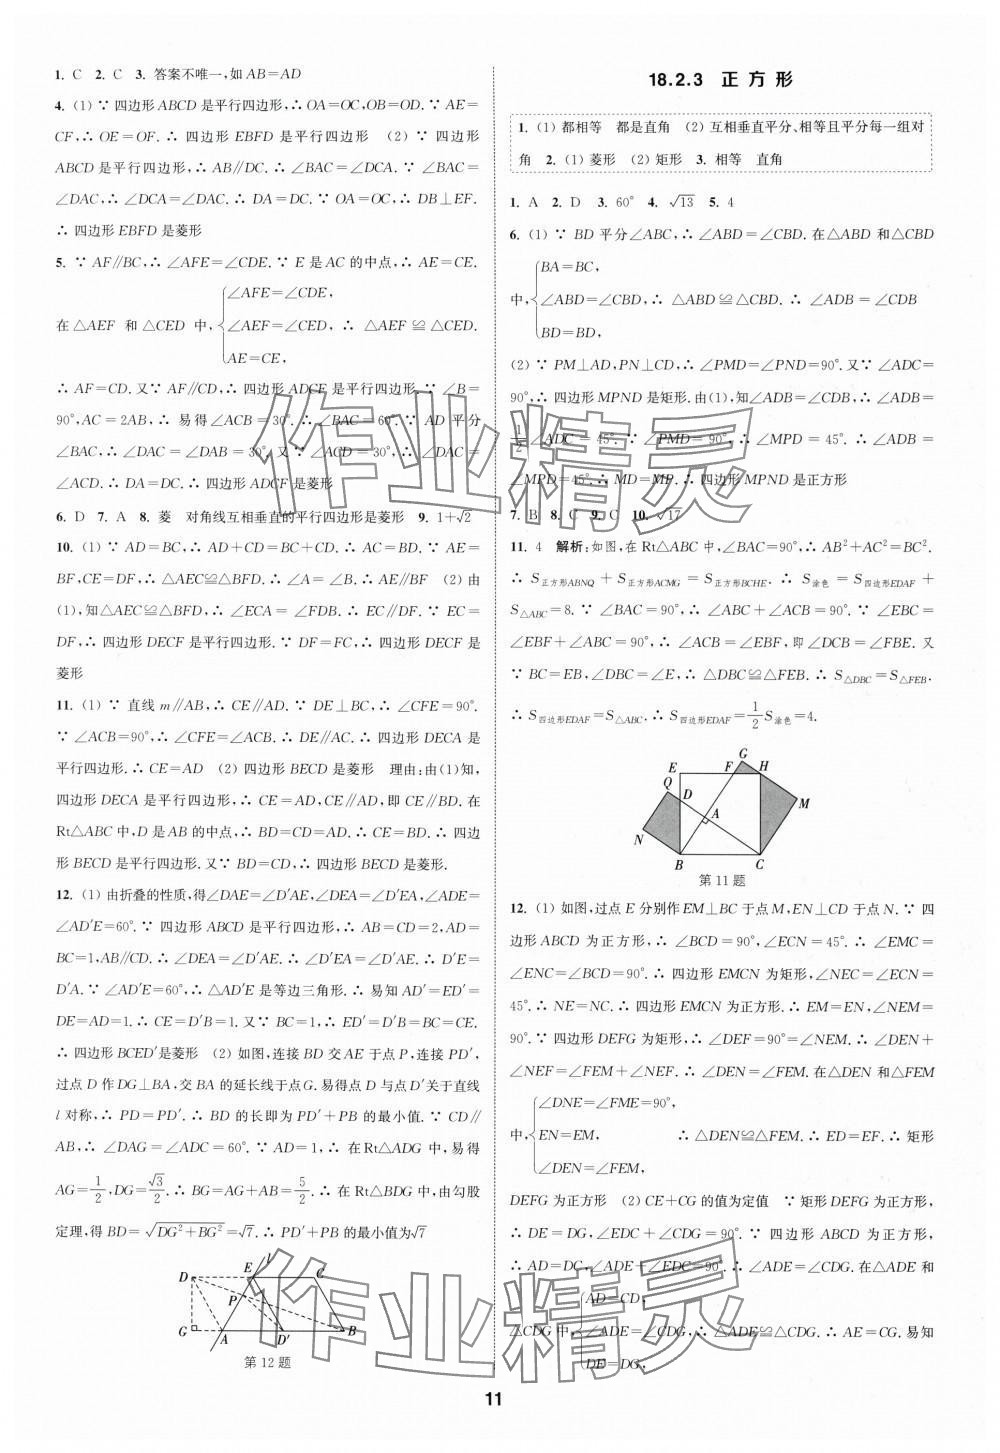 1. C 2. C 3. 答案不唯一,如 AB=AD
4. (1) ∵ 四边形 ABCD 是平行四边形,∴ OA=OC,OB=OD. ∵ AE=
CF,∴ OE=OF. ∴ 四边形 EBFD 是平行四边形 (2) ∵ 四边形
ABCD 是平行四边形,∴ AB∥DC. ∴ ∠BAC=∠DCA. ∵ ∠BAC=
∠DAC,∴ ∠DCA=∠DAC. ∴ DA=DC. ∵ OA=OC,∴ DB⊥EF.
∴ 四边形 EBFD 是菱形
5. ∵ AF∥BC,∴ ∠AFE=∠CDE. ∵ E 是 AC 的中点,∴ AE=CE.
∠AFE=∠CDE,
在△AEF 和△CED 中, ∠AEF=∠CED, ∴ △AEF≌△CED.
AE=CE,
∴ AF=CD. 又∵ AF∥CD,∴ 四边形 ADCF 是平行四边形. ∵ ∠B=
90°,AC=2AB,∴ 易得∠ACB=30°. ∴ ∠BAC=60°. ∵ AD 平分
∠BAC,∴ ∠DAC=∠DAB=30°. 又∵ ∠ACD=30°,∴ ∠DAC=
∠ACD. ∴ DA=DC. ∴ 四边形 ADCF 是菱形
6. D 7. A 8. 菱 对角线互相垂直的平行四边形是菱形 9. 1+√2
10. (1) ∵ AD=BC,∴ AD+CD=BC+CD. ∴ AC=BD. ∵ AE=
BF,CE=DF,∴ △AEC≌△BFD. ∴ ∠A=∠B. ∴ AE∥BF (2) 由
(1),知△AEC≌△BFD,∴ ∠ECA=∠FDB. ∴ EC∥DF. ∵ EC=
DF,∴ 四边形 DECF 是平行四边形. ∵ DF=FC,∴ 四边形 DECF 是
菱形
11. (1) ∵ 直线 m∥AB,∴ CE∥AD. ∵ DE⊥BC,∴ ∠CFE=90°.
∵ ∠ACB=90°,∴ ∠CFE=∠ACB. ∴ DE∥AC. ∴ 四边形 DECA 是
平行四边形. ∴ CE=AD (2) 四边形 BECD 是菱形 理由:由(1)知,
四边形 DECA 是平行四边形,∴ CE=AD,CE∥AD,即 CE∥BD. 在
Rt△ABC 中,D 是 AB 的中点,∴ BD=CD=AD. ∴ CE=BD. ∴ 四边
形 BECD 是平行四边形. 又∵ BD=CD,∴ 四边形 BECD 是菱形.
12. (1) 由折叠的性质,得∠DAE=∠D′AE,∠DEA=∠D′EA,∠ADE=
∠AD′E=60°. ∵ 四边形 ABCD 是平行四边形,∴ AB=CD=2,AD=
BC=1,AB∥CD. ∴ ∠DEA=∠D′AE. ∴ ∠D′EA=∠D′AE. ∴ D′E=
D′A. ∵ ∠AD′E=60°,∴ △AD′E 是等边三角形. ∴ 易知 AD′=ED′=
DE=AD=1. ∴ CE=D′B=1. 又∵ BC=1,∴ ED′=D′B=BC=CE.
∴ 四边形 BCED′是菱形 (2) 如图,连接 BD 交 AE 于点 P,连接 PD′,
过点 D 作 DG⊥BA,交 BA 的延长线于点 G. 易得点 D 与点 D′关于直线
l 对称,∴ PD=PD′. ∴ BD 的长即为 PD′+PB 的最小值. ∵ CD∥
AB,∴ ∠DAG=∠ADC=60°. ∵ AD=1,∴ 在 Rt△ADG 中,易得
AG=1/2,DG=√3/2. ∴ BG=AG+AB=5/2. ∴ 在 Rt△BDG 中,由勾股
定理,得 BD=√(DG²+BG²)=√7. ∴ PD′+PB 的最小值为√7
D E l C
P
G A D′ B
第12题
18.2.3 正方形
1. (1) 都相等 都是直角 (2) 互相垂直平分、相等且平分每一组对
角 2. (1) 菱形 (2) 矩形 3. 相等 直角
1. A 2. D 3. 60° 4. √13 5. 4
6. (1) ∵ BD 平分∠ABC,∴ ∠ABD=∠CBD. 在△ABD 和△CBD
BA=BC,
中, ∠ABD=∠CBD,∴ △ABD≌△CBD. ∴ ∠ADB=∠CDB
BD=BD,
(2) ∵ PM⊥AD,PN⊥CD,∴ ∠PMD=∠PND=90°. 又∵ ∠ADC=
90°,∴ 四边形 MPND 是矩形. 由(1),知∠ADB=∠CDB,∴ ∠ADB=
1/2∠ADC=45°. ∵ ∠PMD=90°,∴ ∠MPD=45°. ∴ ∠ADB=
∠MPD=45°. ∴ MD=MP. ∴ 四边形 MPND 是正方形
7. B 8. C 9. C 10. √17
11. 4 解析:如图,在 Rt△ABC 中,∠BAC=90°,∴ AB²+AC²=BC².
∴ S正方形ABNQ+S正方形ACMG=S正方形BCHE. ∴ S涂色=S四边形EDAF+
S△ABC=8. ∵ ∠BAC=90°,∴ ∠ABC+∠ACB=90°. ∵ ∠EBC=
∠EBF+∠ABC=90°,∴ ∠ACB=∠EBF,即∠DCB=∠FBE. 又
∵ BC=EB,∠DBC=∠E,∴ △DBC≌△FEB. ∴ S△DBC=S△FEB.
∴ S四边形EDAF=S△ABC. ∴ S四边形EDAF=1/2S涂色=4.
G
E F H
Q D
A M
N
B C
第11题
12. (1) 如图,过点 E 分别作 EM⊥BC 于点 M,EN⊥CD 于点 N. ∵ 四
边形 ABCD 为正方形,∴ ∠BCD=90°,∠ECN=45°. ∴ ∠EMC=
∠ENC=∠BCD=90°. ∴ 四边形 EMCN 为矩形,∠NEC=∠ECN=
45°. ∴ NE=NC. ∴ 四边形 EMCN 为正方形. ∴ EM=EN,∠NEM=
90°. ∵ 四边形 DEFG 为矩形,∴ ∠DEF=90°=∠NEM. ∴ ∠DEN+
∠NEF=∠FEM+∠NEF. ∴ ∠DEN=∠FEM. 在△DEN 和△FEM
∠DNE=∠FME=90°,
中, EN=EM, ∴ △DEN≌△FEM. ∴ ED=EF. ∴ 矩形
∠DEN=∠FEM,
DEFG 为正方形 (2) CE+CG 的值为定值 ∵ 矩形 DEFG 为正方形,
∴ DE=DG,∠EDC+∠CDG=90°. ∵ 四边形 ABCD 为正方形,
∴ AD=DC,∠ADE+∠EDC=90°. ∴ ∠ADE=∠CDG. 在△ADE 和
AD=CD,
△CDG 中, ∠ADE=∠CDG,∴ △ADE≌△CDG. ∴ AE=CG. 易知
DE=DG,
11
作业精灵
作业精灵